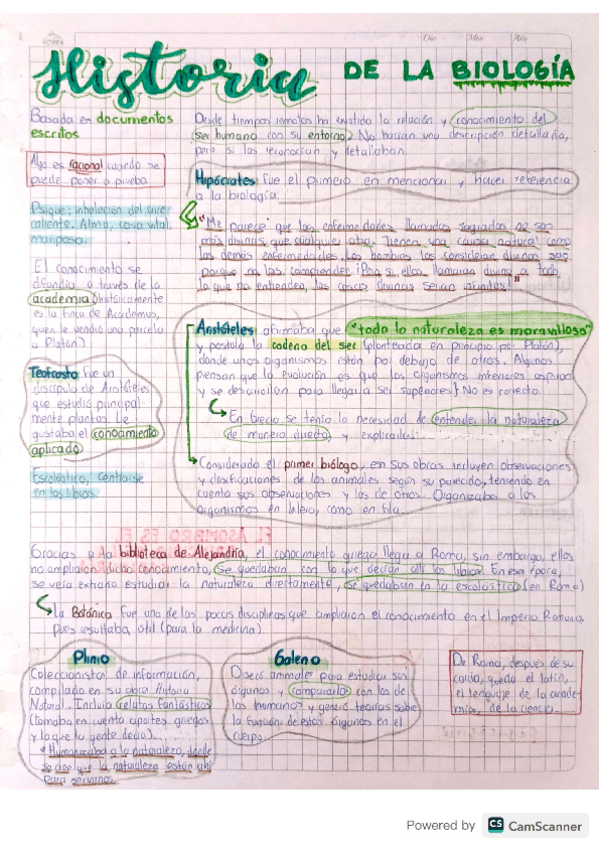 Historia DE LA BIOLOGÍA
Basada en documentos
escritos
Algo es racional cuando se
puede poner a prueba.
Psique: inhalación del aire
caliente. Alma, cosa vital,
mariposa.
El conocimiento se
difundía a través de la
academia (históricamente
es la finca de Academus,
quien le vendió una parcela
a Platón)
Teofrasto fue un
discípulo de Aristóteles
que estudió principal-
mente plantas. Le
gustaba el conocimiento
aplicado
Escolástica, centrarse
en los libros.
Desde tiempos remotos ha existido la relación y conocimiento del
ser humano con su entorno. No hacían una descripción detallada,
pero si los reconocían y detallaban.
Hipócrates fue el primero en mencionar y hacer referencia
a la biología.
"Me parece que las enfermedades llamadas sagradas no son
más divinas que cualquier otra. Tienen una causa natural como
las demás enfermedades. Los hombres las consideran divinas solo
porque no las comprenden ¡Pero si ellos llamaran divino a todo
lo que no entienden, las cosas divinas serían infinitas!"
Aristóteles afirmaba que "toda la naturaleza es maravillosa"
y postula la cadena del ser (planteada en principio por Platón),
donde unos organismos están por debajo de otros. Algunos
piensan que la evolución es que los organismos inferiores aspiran
y se desarrollan para llegar a ser superiores} No es correcto.
En Grecia se tenía la necesidad de entender la naturaleza
de manera directa y explicarla.
Considerado el primer biólogo, en sus obras incluyen observaciones
y clasificaciones de los animales según su parecido, teniendo en
cuenta sus observaciones y las de otros. Organizaba a los
organismos en hilera, como en fila.
Gracias a la biblioteca de Alejandría, el conocimiento griego llega a Roma, sin embargo, ellos
no amplían dicho conocimiento, se quedaban con lo que decían allí los libros. En esa época,
se veía extraño estudiar la naturaleza directamente, se quedaban en la escolástica (en Roma)
La Botánica fue una de las pocas disciplinas que ampliaron el conocimiento en el Imperio Romano,
pues resultaba útil (para la medicina)
Plinio
Coleccionista de información,
compilado en su obra Historia
Natural. Incluía relatos fantásticos
(Tomaba en cuenta aportes griegos
y lo que la gente decía).
Humanizaba a la naturaleza, donde
se cree que la naturaleza están ahí
para servirnos.
Galeno
Disecó animales para estudiar sus
órganos y compararlos con los de
los humanos y generó teorías sobre
la función de estos órganos en el
cuerpo.
De Roma, después de su
caída, queda el latín,
el lenguaje de la acade-
mia, de la ciencia.
Powered by CS CamScanner